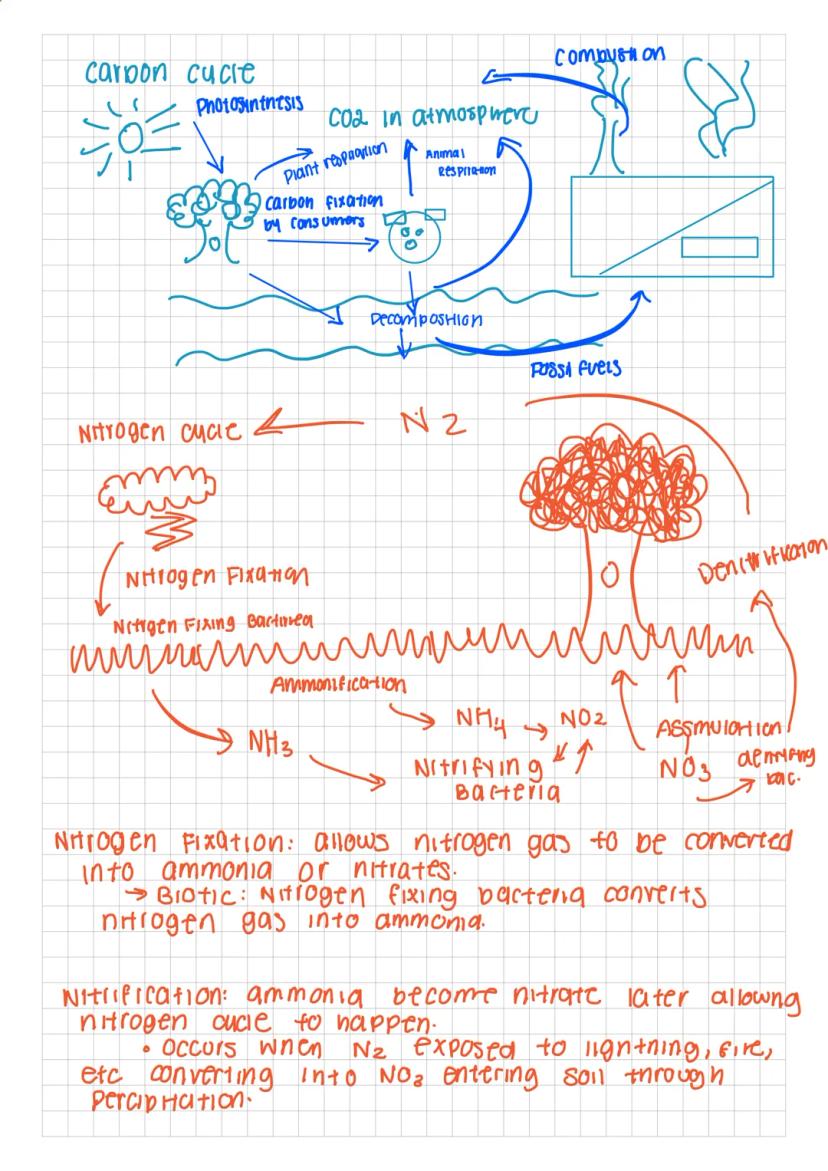 Carbon cycle
Combustion
Photosinthesis
CO2 in atmosphere
Plant respiration
Animal
Respiration
Carbon fixation
by consumers
Decomposition
Fossil fuels
Nitrogen cycle
N2
Denitrification
Nitrogen Fixation
Nitrgen Fixing Bacturea
Ammonification
NH4
NO2
NH3
Nitrifying
Bacteria
Assmulation
NO3
bac.
Nitrogen Fixation: allows nitrogen gas to be converted
into ammonia or nitrates.
→ Biotic: Nitrogen fixing bacteria converts
nitrogen gas into ammonia.
Nitrification: ammonia become nitrate later allowng
nitrogen cycle to happen.
• occurs when N2 exposed to lightning, fire,
etc converting into NO3 entering soil through
percipitation.